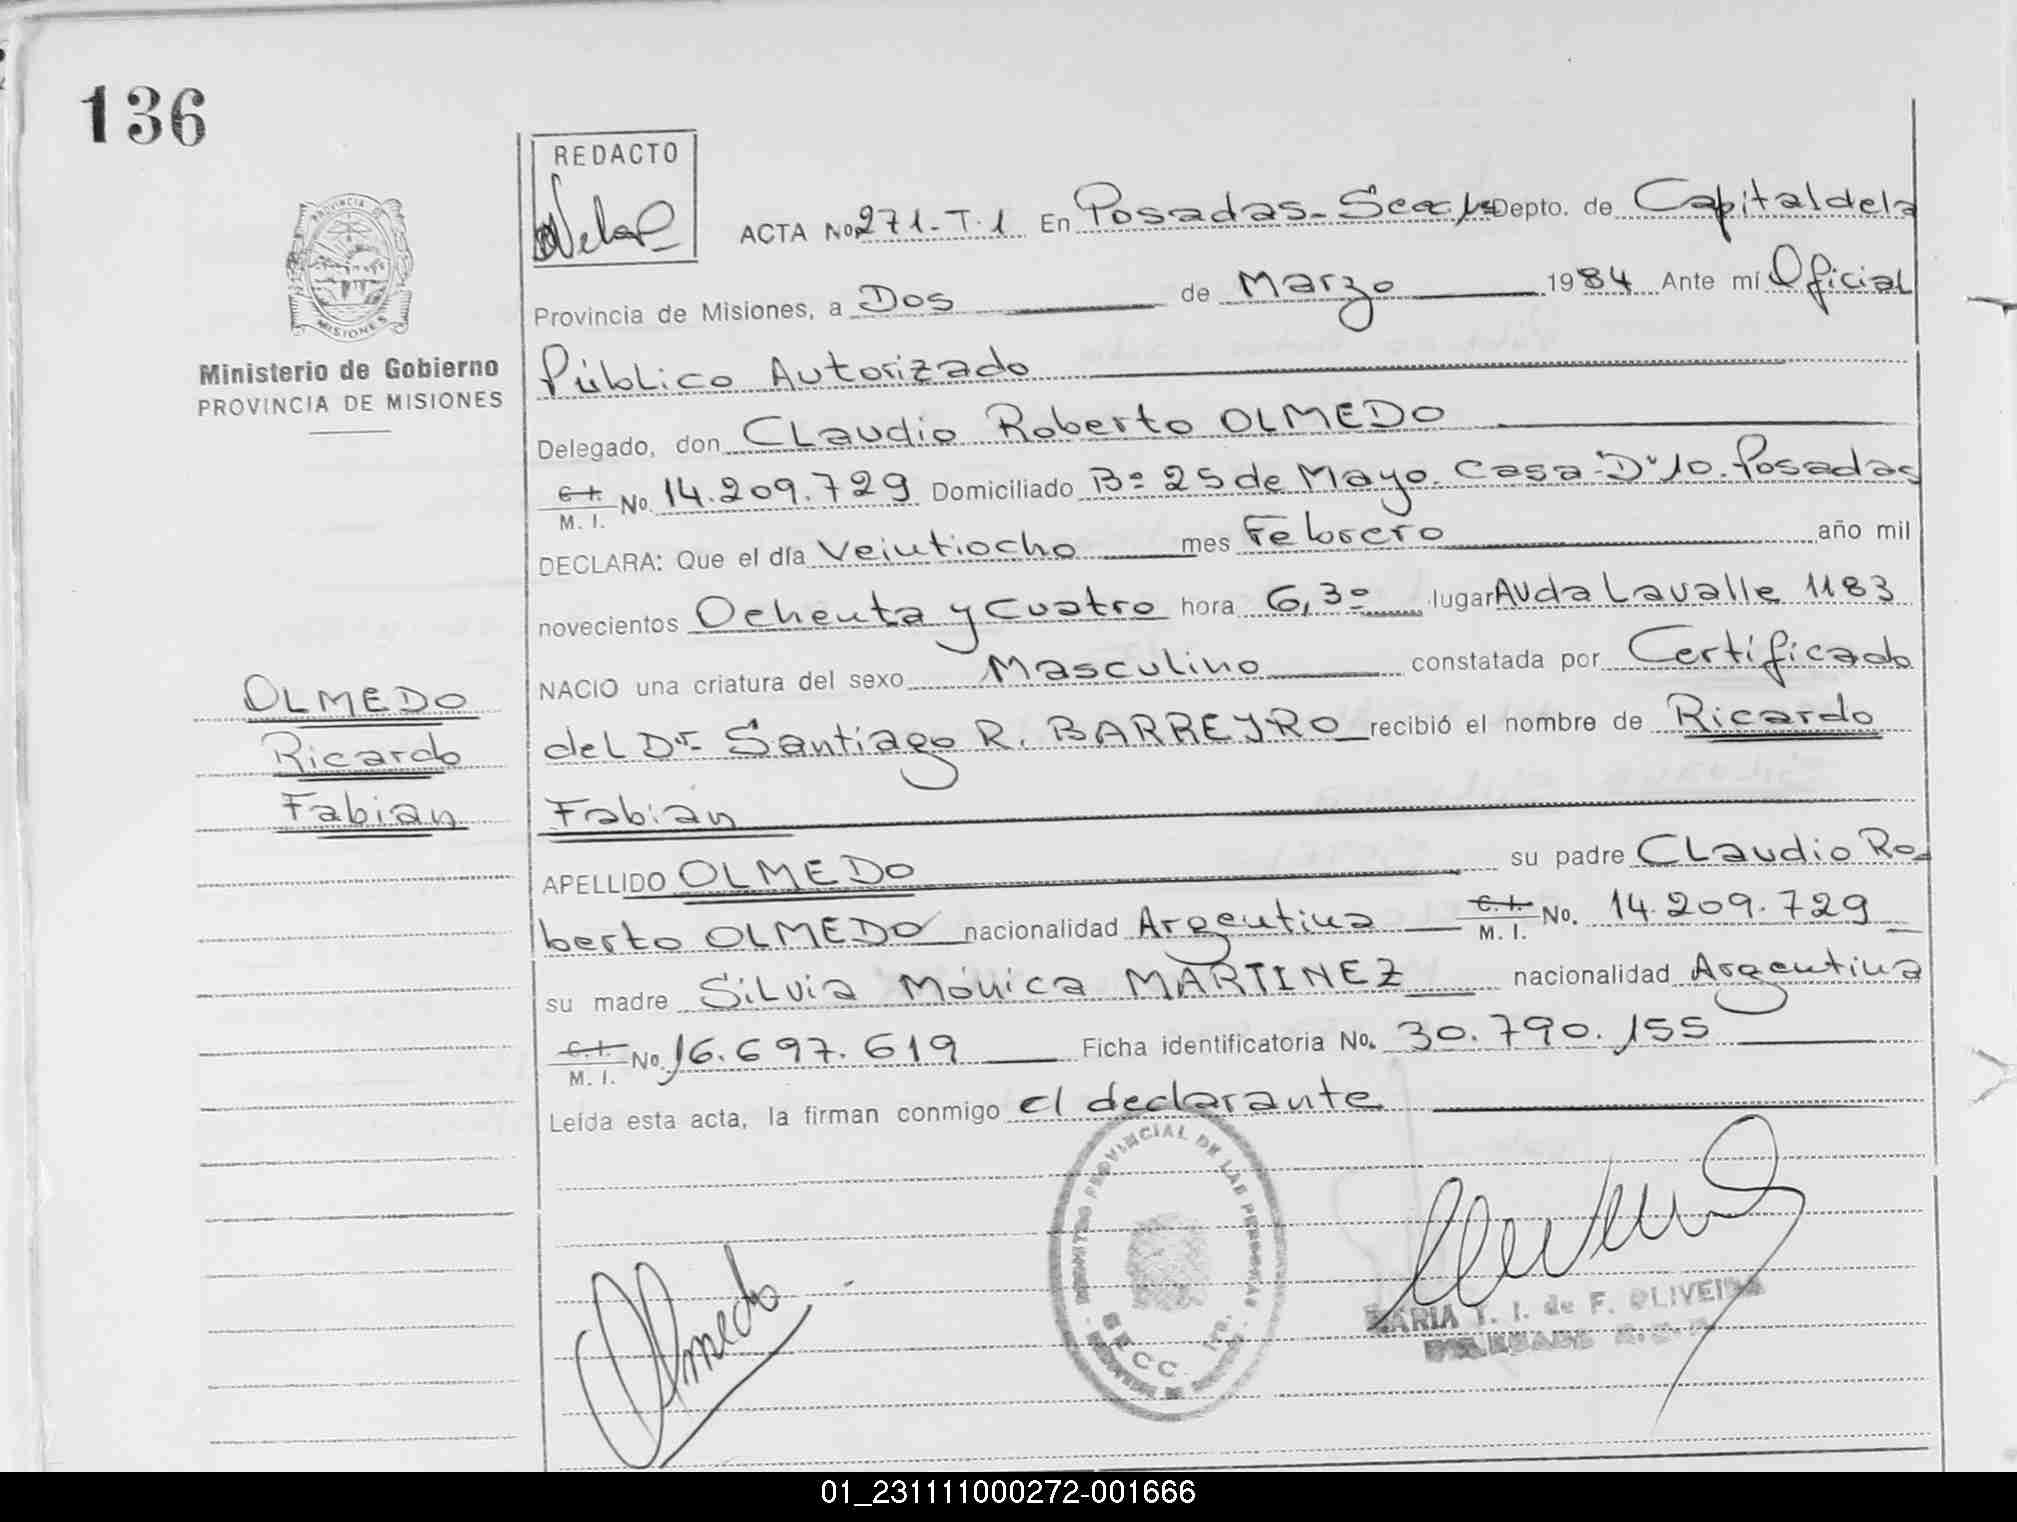 136
REDACTO
ACTA No 271-T.1 En Posadas- Secc 1ª Depto. de Capital de la
PROVINCIA DE
MISIONES
Provincia de Misiones, a Dos de Marzo 1984 Ante mí Oficial
Ministerio de Gobierno
PROVINCIA DE MISIONES
Público Autorizado
Delegado, don CLaudio Roberto OLMEDO
C.I. M. I. No. 14.209.729 Domiciliado Bº 25 de Mayo. Casa "D" 10. Posadas
DECLARA: Que el día Veintiocho mes Febrero año mil
novecientos Ochenta y Cuatro hora 6,30 lugar Avda Lavalle 1183
NACIO una criatura del sexo Masculino constatada por Certificado
OLMEDO
Ricardo
Fabian
del Dr. Santiago R. BARREYRO recibió el nombre de Ricardo
Fabian
APELLIDO OLMEDO su padre CLaudio Ro-
berto OLMEDO nacionalidad Argentina C.I. M. I. No. 14.209.729
su madre Silvia Mónica MARTINEZ nacionalidad Argentina
C.I. M. I. No. 16.697.619 Ficha identificatoria No. 30.790.155
Leída esta acta, la firman conmigo el declarante
PROVINCIAL DE LAS PERSONAS
SECC. 1ra.
Olmedo
MARIA T. I. de F. OLIVEIRA
01_231111000272-001666